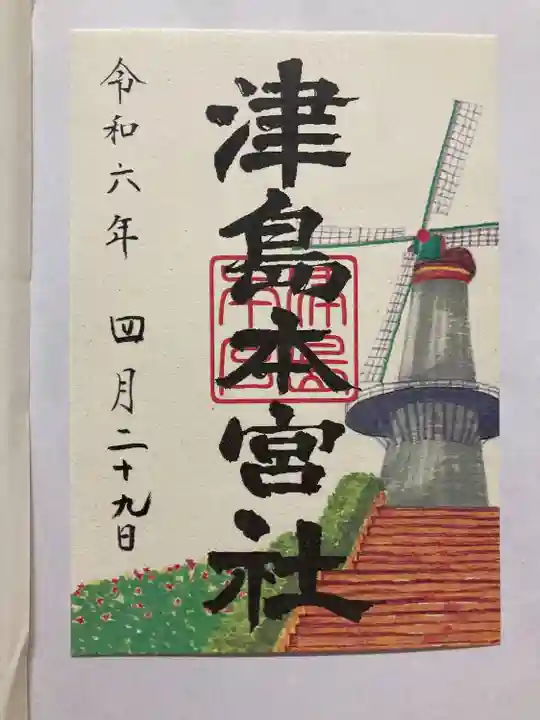 津島本宮社
令和六年 四月二十九日